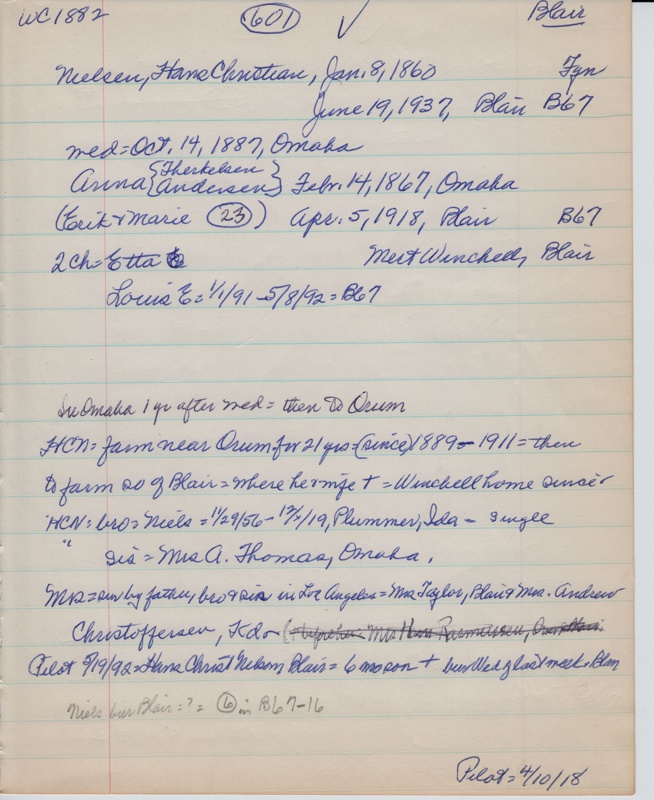 WC1882 601 ✓ Blair
Nielsen, Hans Christian, Jan. 8, 1860 Fyn
June 19, 1937, Blair B67
med = Oct. 14, 1887, Omaha
Anna {Therkelsen
Andersen} Febr. 14, 1867, Omaha
(Erik + Marie 23) Apr. 5, 1918, Blair B67
2 ch = Etta Mert Winchell, Blair
Louis E = 1/1/91 - 5/8/92 = B67
In Omaha 1 yr after med = then to Orum
HCN = farm near Orum for 21 yrs - (since) 1889 - 1911 = then
to farm so of Blair = where he + wife + = Winchell home since
HCN = bro = Niels = 11/29/56 - 12/ /19, Plummer, Ida - single
" sis = Mrs A. Thomas, Omaha.
Mrs = sur by father, bro + sis in Los Angeles = Mrs Taylor, Blair + Mrs. Andrew
Christoffersen, Kd - ( Mrs Hans Rasmussen,
Pilot 5/19/92 = Hans Christ Nielsen Blair = 6 mo son + bur Wed of last week = Blair
Niels bur Blair = ? = 6 in B67-16
Pilot = 4/10/18